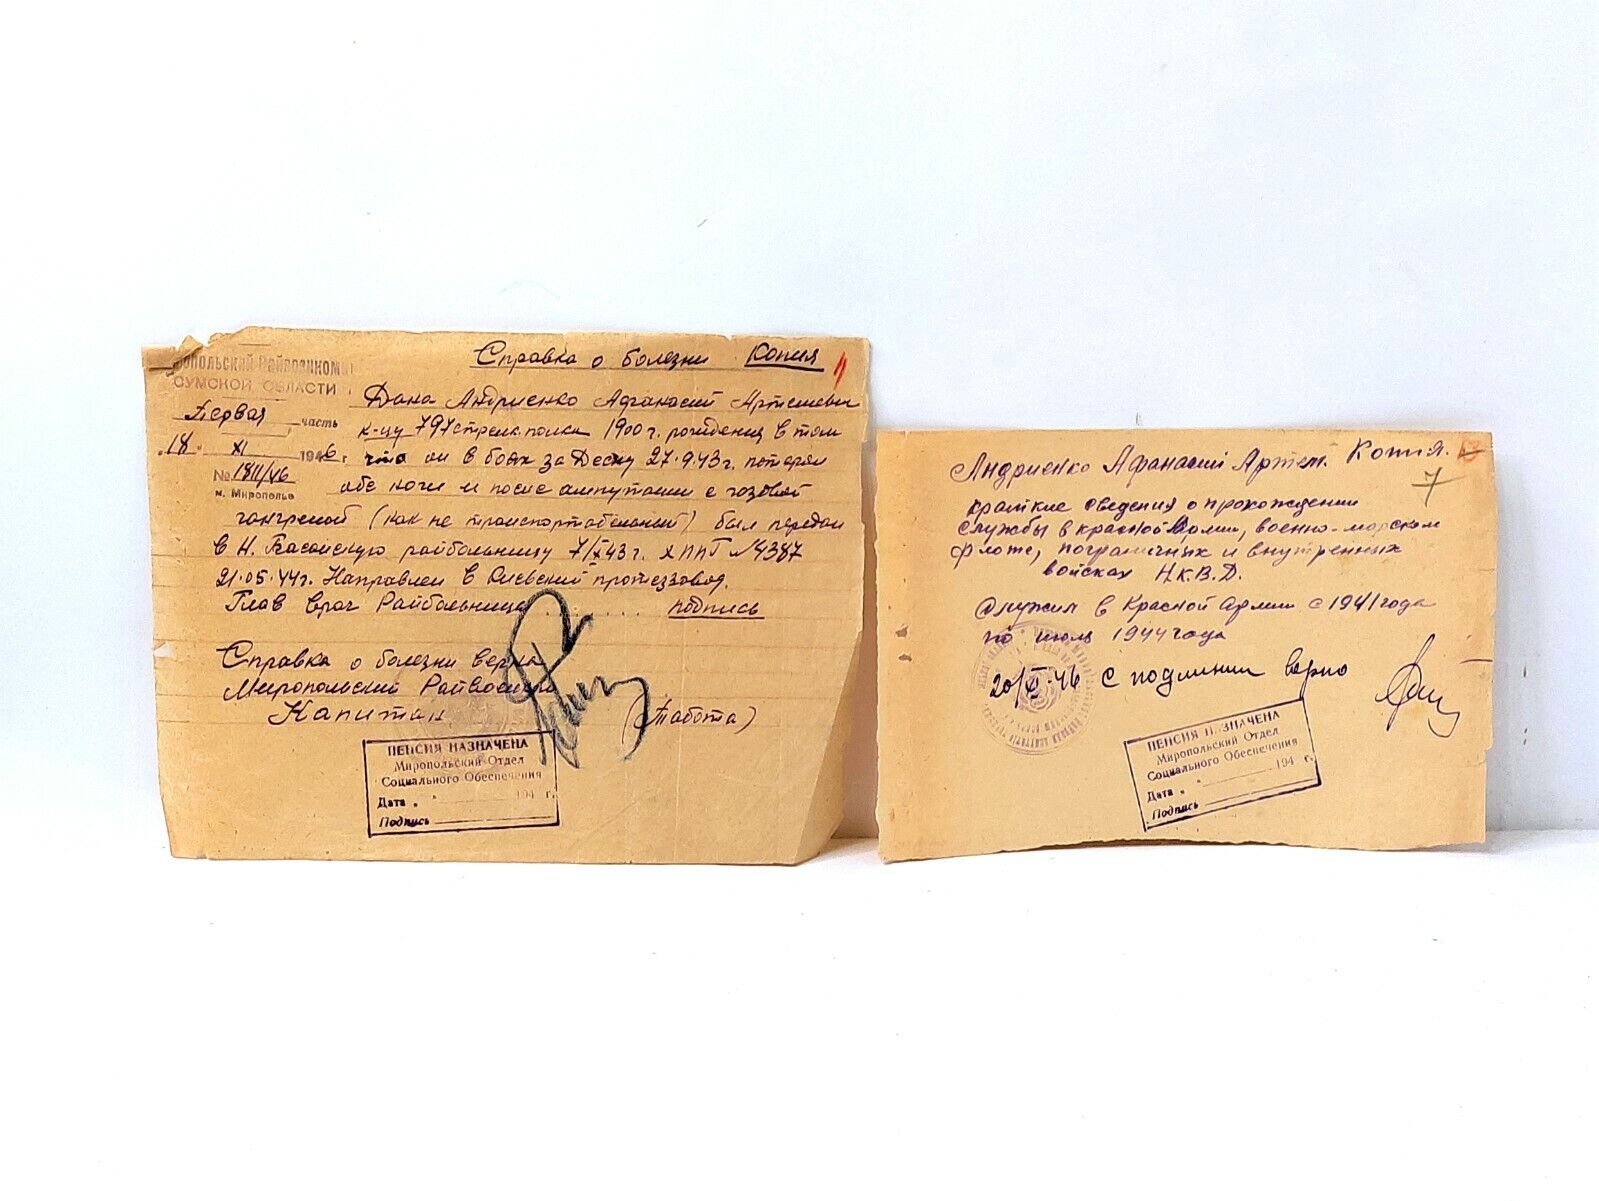 Справка о болезни Копия
опольский Райвоенком
СУМСКОЙ ОБЛАСТИ
Первая часть
"18" XI 1946 г.
№ 1811/46
м. Мирополье
Дана Андриенко Афанасий Артемович
к-цу 797 стрелк. полка 1900 г. рождения в том
что он в боях за Десну 27.9.43 г. потерял
обе ноги и после ампутации с газовой
гангреной (как не транспортабельный) был передан
в Н. Басанскую райбольницу 7/X 43 г. ХППГ №4387
21.05.44 г. Направлен в Киевский протеззавод.
Глав врач Райбольницы .... подпись
Справка о болезни верна
Миропольский Райвоенком
Капитан (Табота)
ПЕНСИЯ НАЗНАЧЕНА
Миропольский Отдел
Социального Обеспечения
Дата " " 194 г.
Подпись
Андриенко Афанасий Артем. Копия.
7
краткие сведения о прохождении
службы в красной Армии, военно-морском
флоте, пограничных и внутренних
войсках Н.К.В.Д.
Служил в Красной Армии с 1941 года
по июль 1944 года
20/XI 46 С подлинным верно
ПЕНСИЯ Н.ЗНАЧЕНА
Миропольский Отдел
Социального Обеспечения
Дата " " 194 г.
Подпись